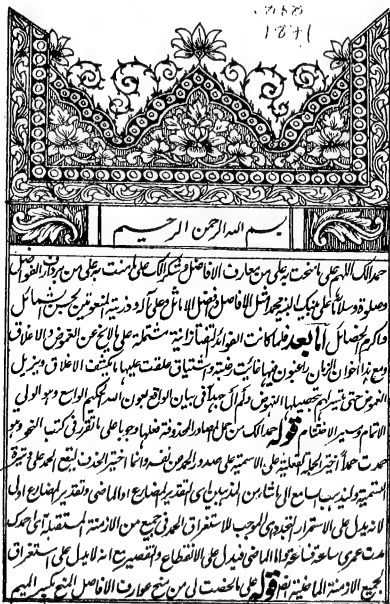 بسم الله الرحمن الرحيم
حمدا لك اللهم على ما منحت به على من معارف الافاضل وشكرا لك على ما مننت به على من
وصلوة وسلاما على نبيك النبيه محمد افضل الاماثل وعلى آله وذريته المنعوتين باحسن الشمائل
واكرم الخصائل اما بعد فلما كانت الفوائد التفتازانية مشتملة على ما لا يخ عن الغموض والاغلاق
ومع ذا اخوان الزمان راغبون فيها غاية رغبة واشتياق علقت عليها ما يكشف الاغلاق ويزيل
الغموض حتى يتيسر لهم تحصيلها والنهوض ولم آل جهدا في بيان الواقع بعون الله الحكيم الواسع وهو الولي
الاتمام وميسر الاختتام قوله احمدا لك من جملة المصادر المحذوفة فعلها وجوبا على ما تقرر في كتب النحو وهو
حمدت حمدا اختير الجملة الفعلية على الاسمية على صدور الحمد عن نفسه وانما اختير الحذف ليقع الحمد على وتيرة
التسمية وليذهب السامع الى ما شاء من المذهبين اى التقدير المضارع او الماضى وتقدير المضارع اولى
لانه يدل على الاستمرار التجددى الموجب للاستغراق الحمد فى جميع من الازمنة المستقبلة اى احمدك
مدت عمرى ساعة فساعة واما الماضى فيدل على الانقطاع والتقصير مع انه لا يدل على استغراق
لجميع الازمنة الماضية قوله على ما خصصت لى من منح عوارف الافاضل المنح بكسر الميم